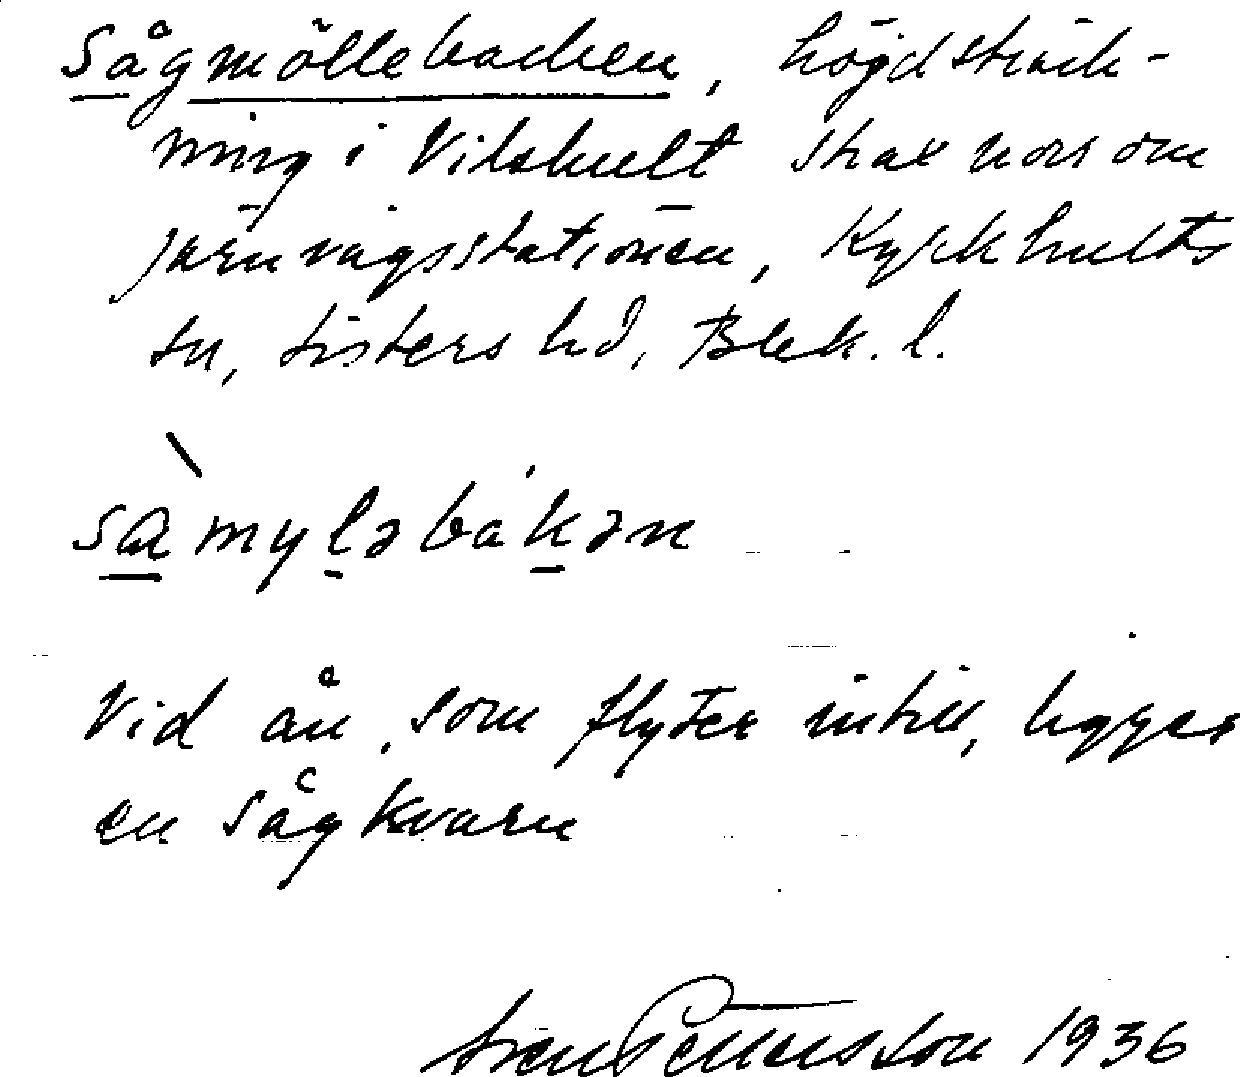 Sågmöllebacken, högdsträck-
ning i Vilshult strax norr om
järnvägsstationen, Kyrkhults
sn, Listers hd, Blek. l.
sɑ̀myləbákən
Vid ån, som flyter intill, ligger
en sågkvarn
Sven Pettersson 1936